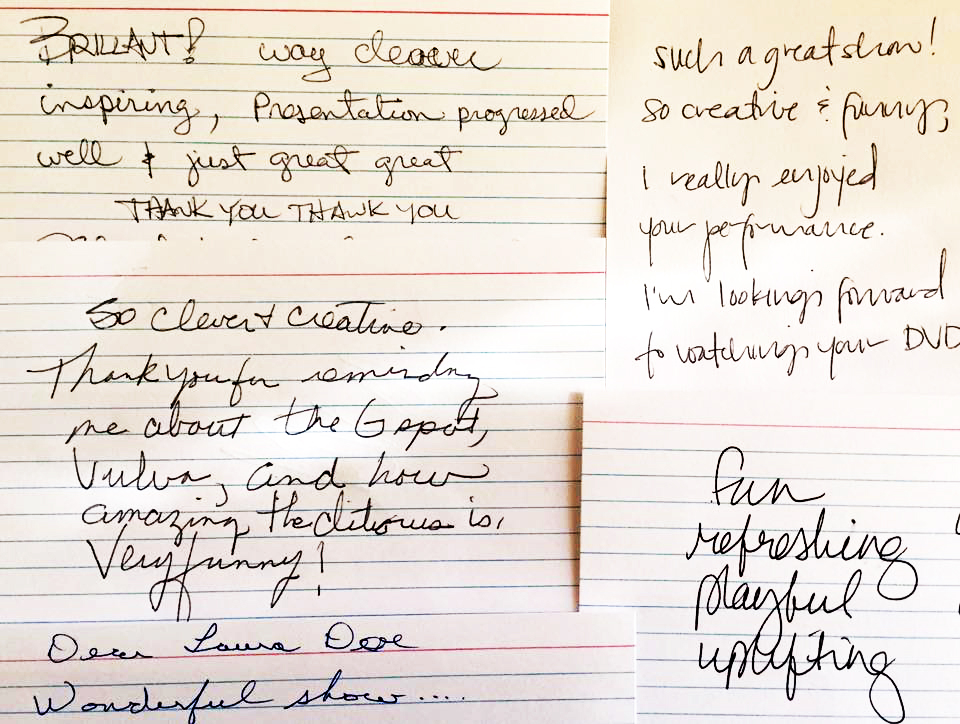 BRILLANT! way cleaver
inspiring, Presentation progressed
well & just great great
THANK YOU THANK YOU
such a great show!
so creative & funny,
I really enjoyed
your performance.
I'm looking forward
to watching your DVD
So Clever & Creative.
Thank you for reminding
me about the G spot,
Vulva, and how
amazing the clitorus is,
Very funny!
fun
refreshing
playful
uplifting
Dear Laura Doe
Wonderful show....